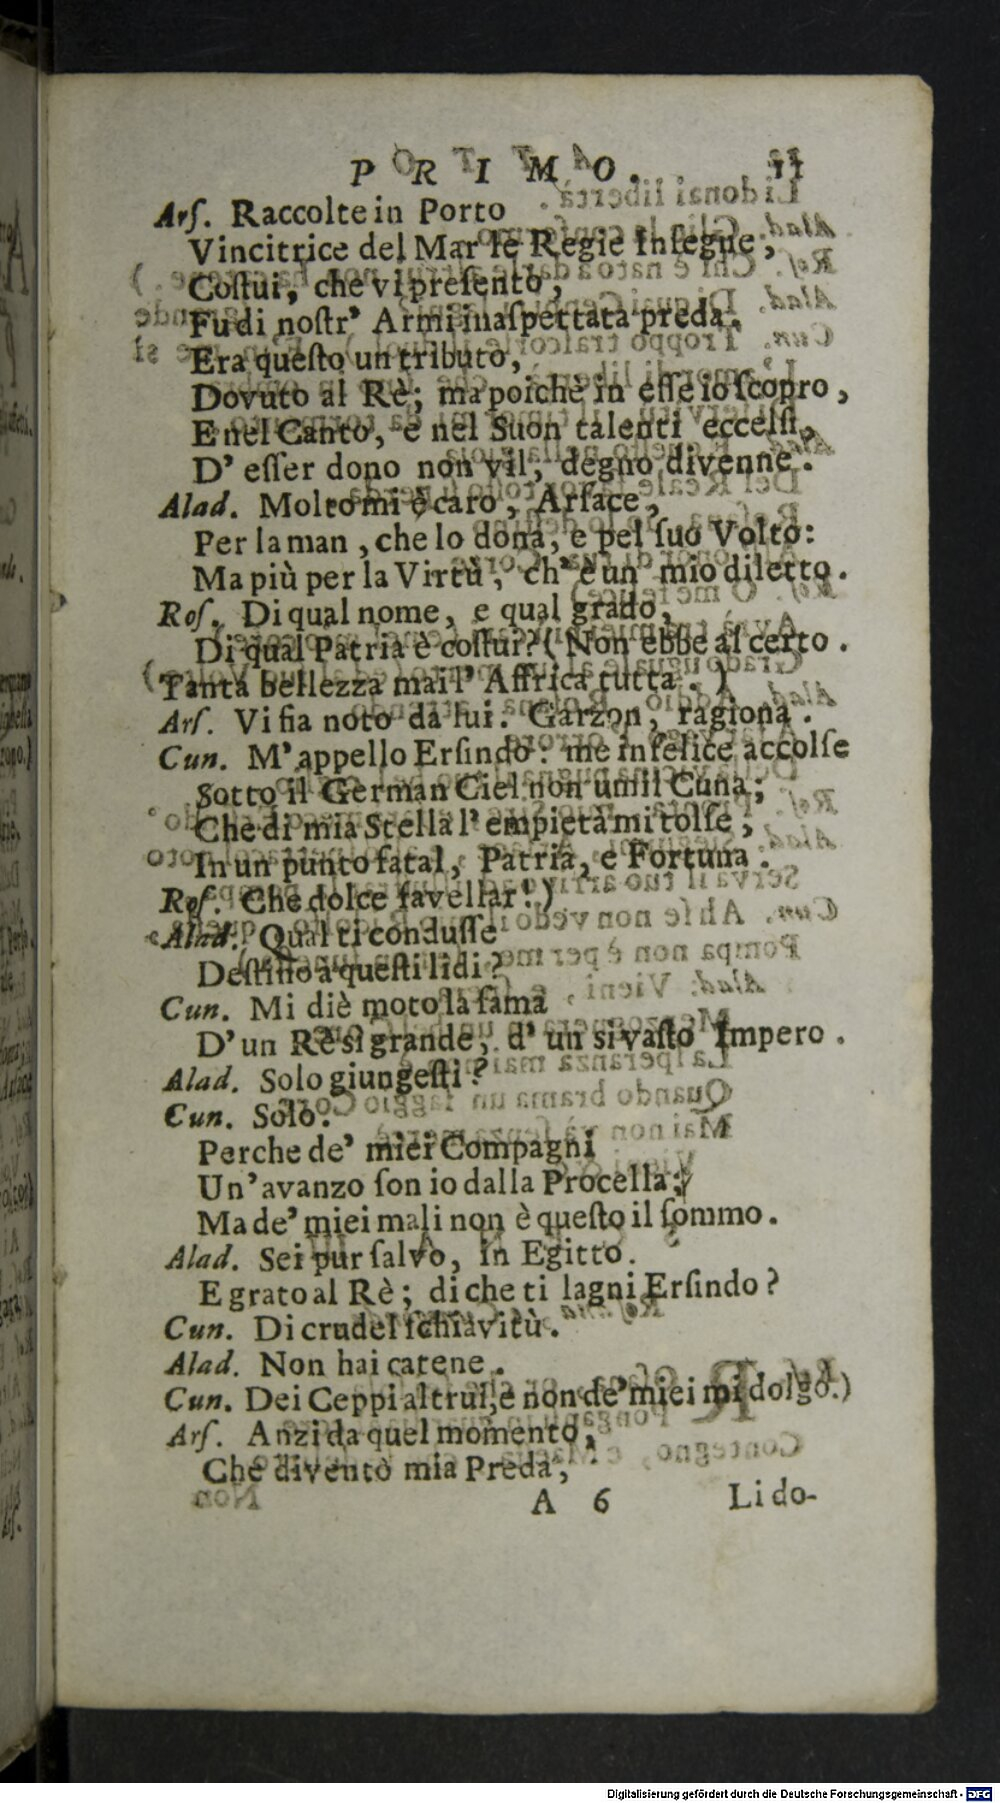 PRIMO. 11
Arſ. Raccolte in Porto
Vincitrice del Mar le Regie Inſegne,
Coſtui, che vi preſento,
Fu di noſtr' Armi inaſpettata preda.
Era queſto un tributo,
Dovuto al Rè; ma poiche in eſſe io ſcopro,
E nel Canto, e nel Suon talenti eccelſi,
D' eſſer dono non vil, degno divenne.
Alad. Molto mi è caro, Arſace,
Per la man, che lo dona, e pel ſuo Volto:
Ma più per la Virtù, ch' è un mio diletto.
Roſ. Di qual nome, e qual grado,
Di qual Patria è coſtui? (Non ebbe al certo.
Tanta bellezza mai l' Affrica tutta.)
Arſ. Vi fia noto da lui. Garzon, ragiona.
Cun. M' appello Erſindo: me infelice accolſe
Sotto il German Ciel non umil Cuna;
Che di mia Stella l' empietà mi tolſe,
In un punto fatal, Patria, e Fortuna.
Roſ. Che dolce favellar!)
Alad. Qual ti conduſſe
Deſtino a queſti lidi?
Cun. Mi diè moto la fama
D' un Rè sì grande, d' un sì vaſto Impero.
Alad. Solo giungeſti?
Cun. Solo.
Perche de' miei Compagni
Un' avanzo ſon io dalla Procella;
Ma de' miei mali non è queſto il ſommo.
Alad. Sei pur ſalvo, in Egitto.
E grato al Rè; di che ti lagni Erſindo?
Cun. Di crudel ſchiavitù.
Alad. Non hai catene.
Cun. Dei Ceppi altrui, e non de' miei mi dolgo.)
Arſ. Anzi da quel momento,
Che diventò mia Preda,
A 6 Li do-
Digitalisierung gefördert durch die Deutsche Forschungsgemeinschaft - DFG